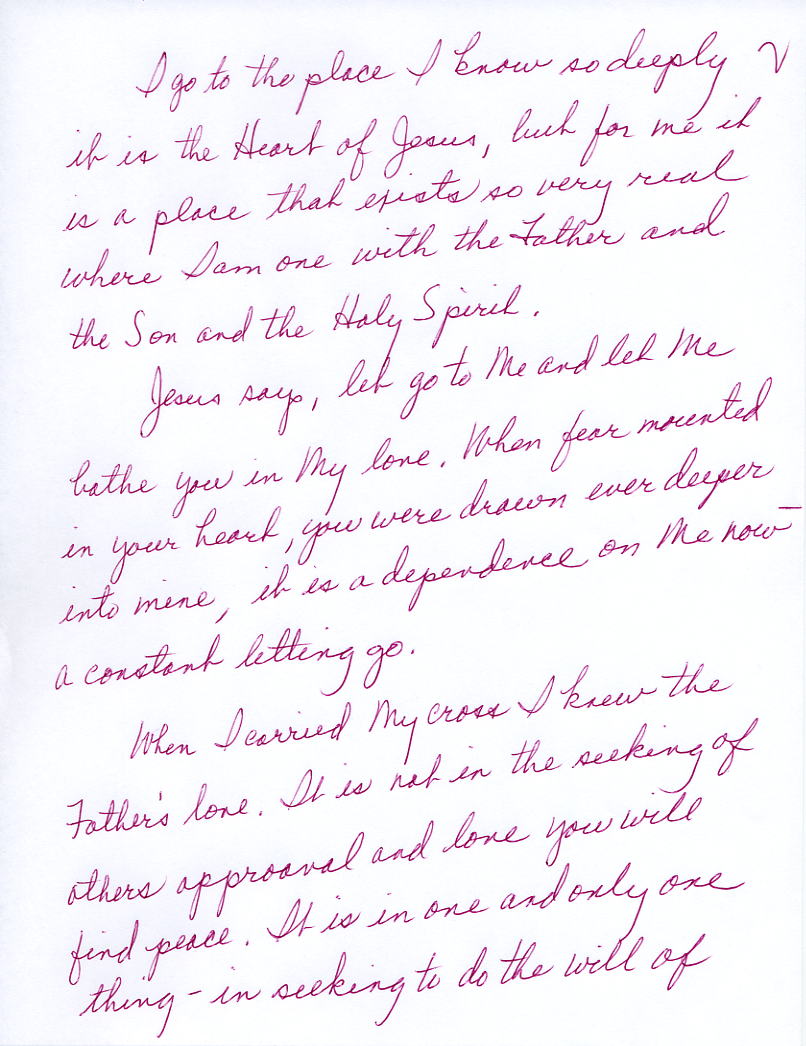 I go to the place I know so deeply
it is the Heart of Jesus, but for me it
is a place that exists so very real
where I am one with the Father and
the Son and the Holy Spirit.
Jesus says, let go to Me and let Me
bathe you in My love. When fear mounted
in your heart, you were drawn ever deeper
into mine, it is a dependence on Me now -
a constant letting go.
When I carried My cross I knew the
Father's love. It is not in the seeking of
others approaval and love you will
find peace. It is in one and only one
thing - in seeking to do the will of